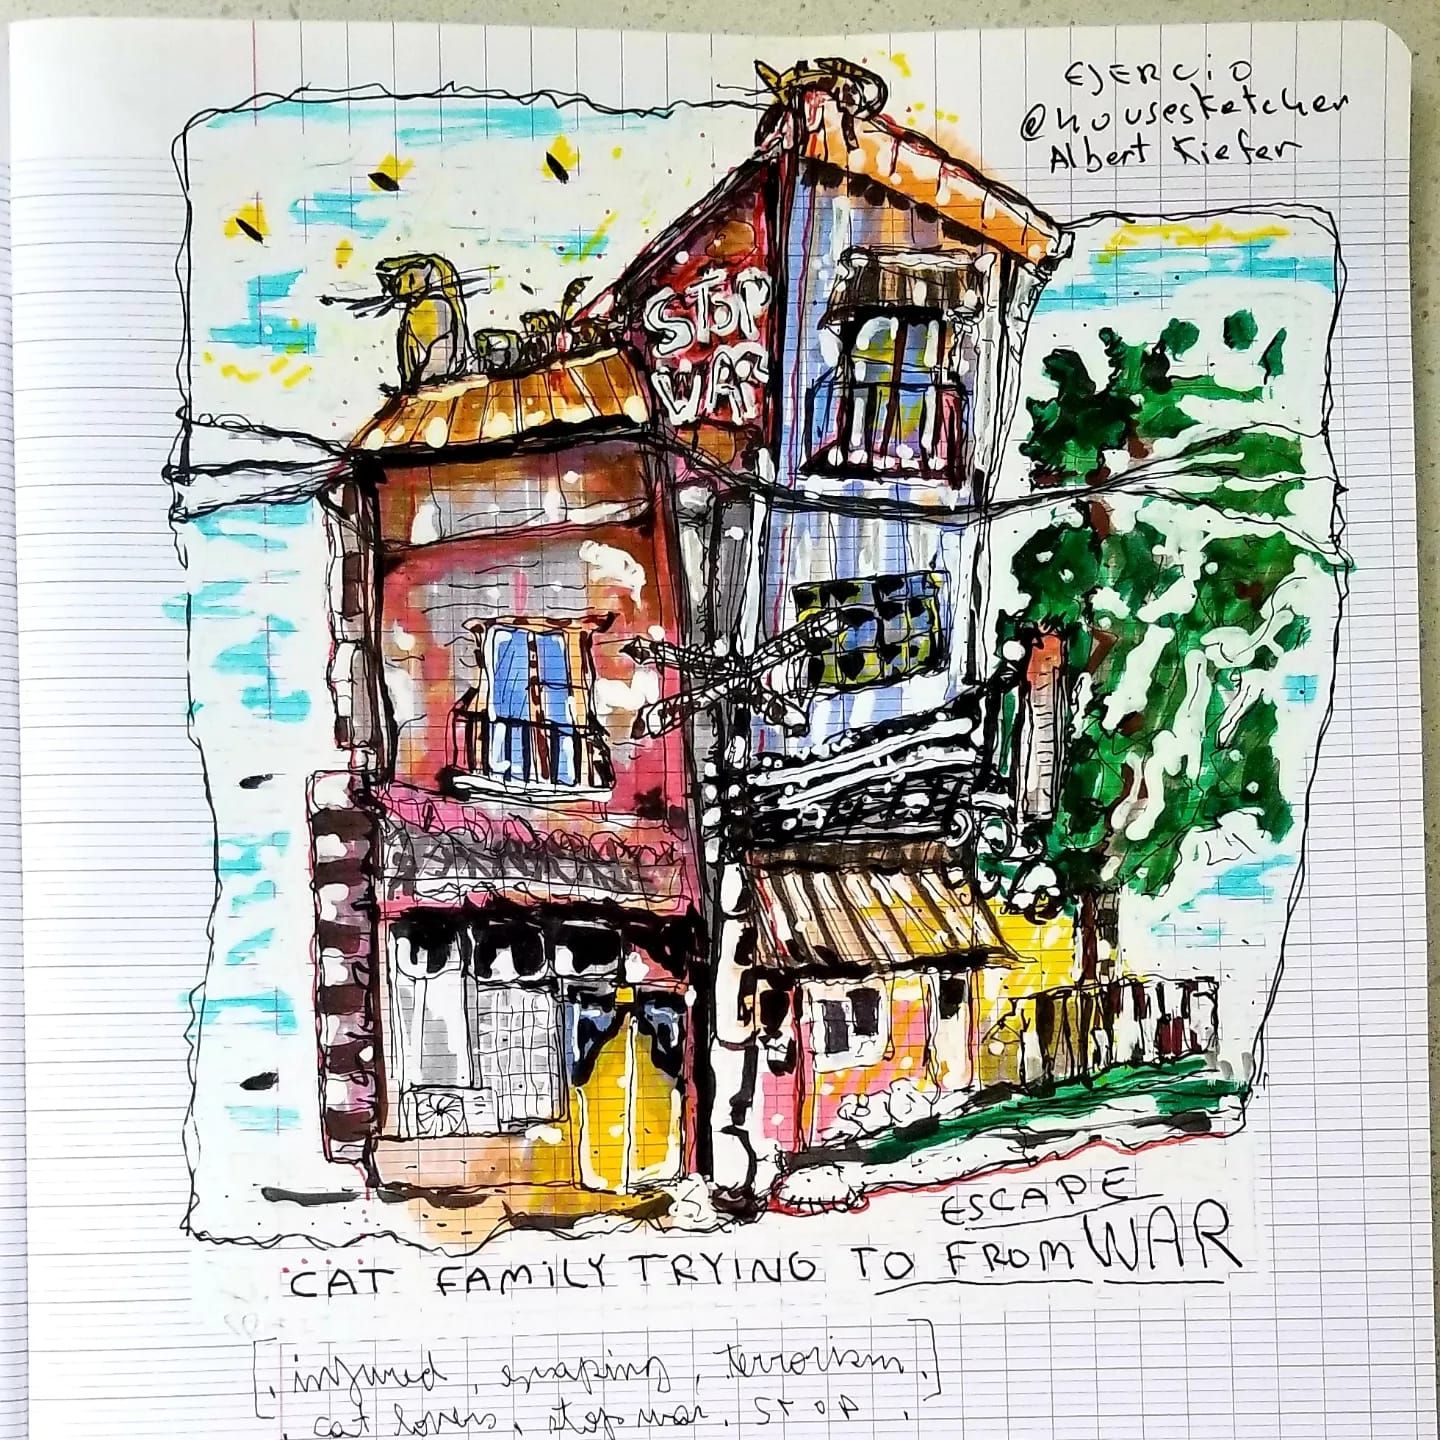 EJERCiO
@housesketcher
Albert Kiefer
STOP
WAR
ESCAPE
CAT FAMILY TRYING TO FROM WAR
[. injured, escaping, terrorism.]
. cat lovers, stop war. STOP .